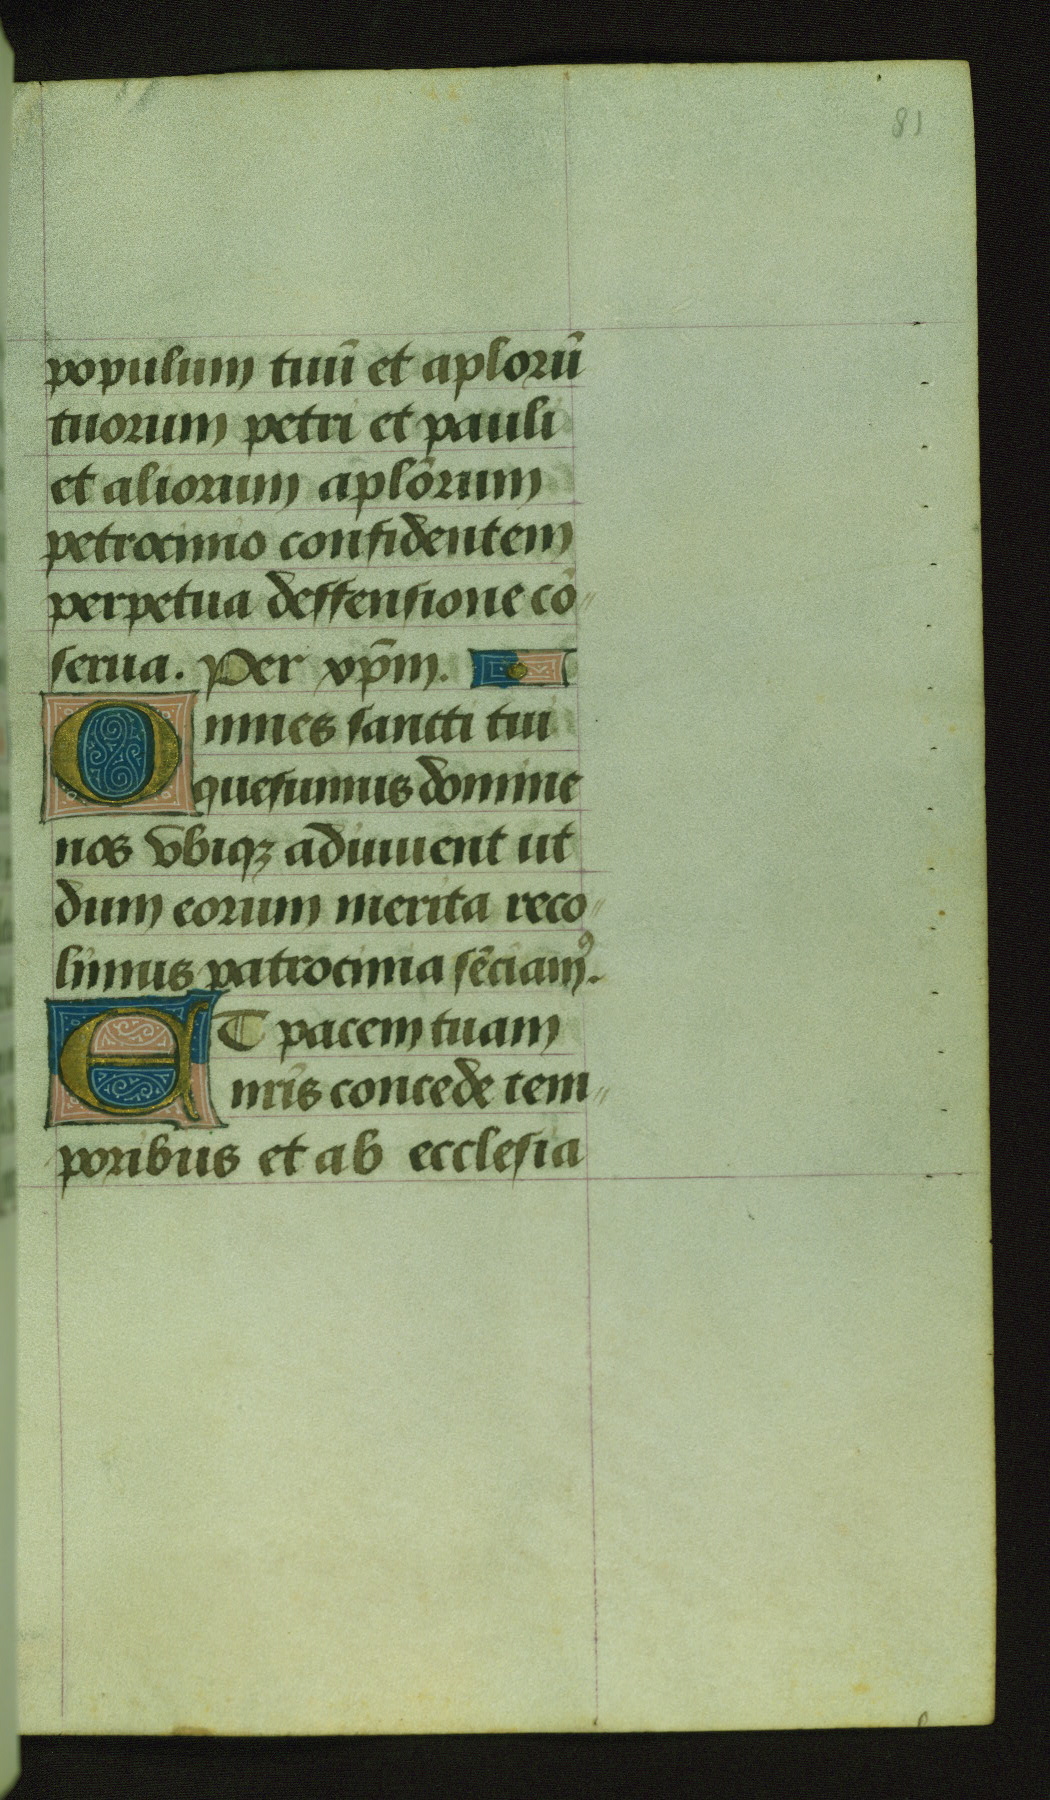 81
populum tuū et aplorū
tuorum petri et pauli
et aliorum aplōrum
petrocinio confidentem
perpetua deffensione cō
serua. Per xp̄m.
Omnes sancti tui
quesumus domine
nos vbiqꝫ adiuuent ut
dum eorum merita reco
limus patrocinia sēciamꝰ.
ET pacem tuam
nr̄is concede tem
poribus et ab ecclesia